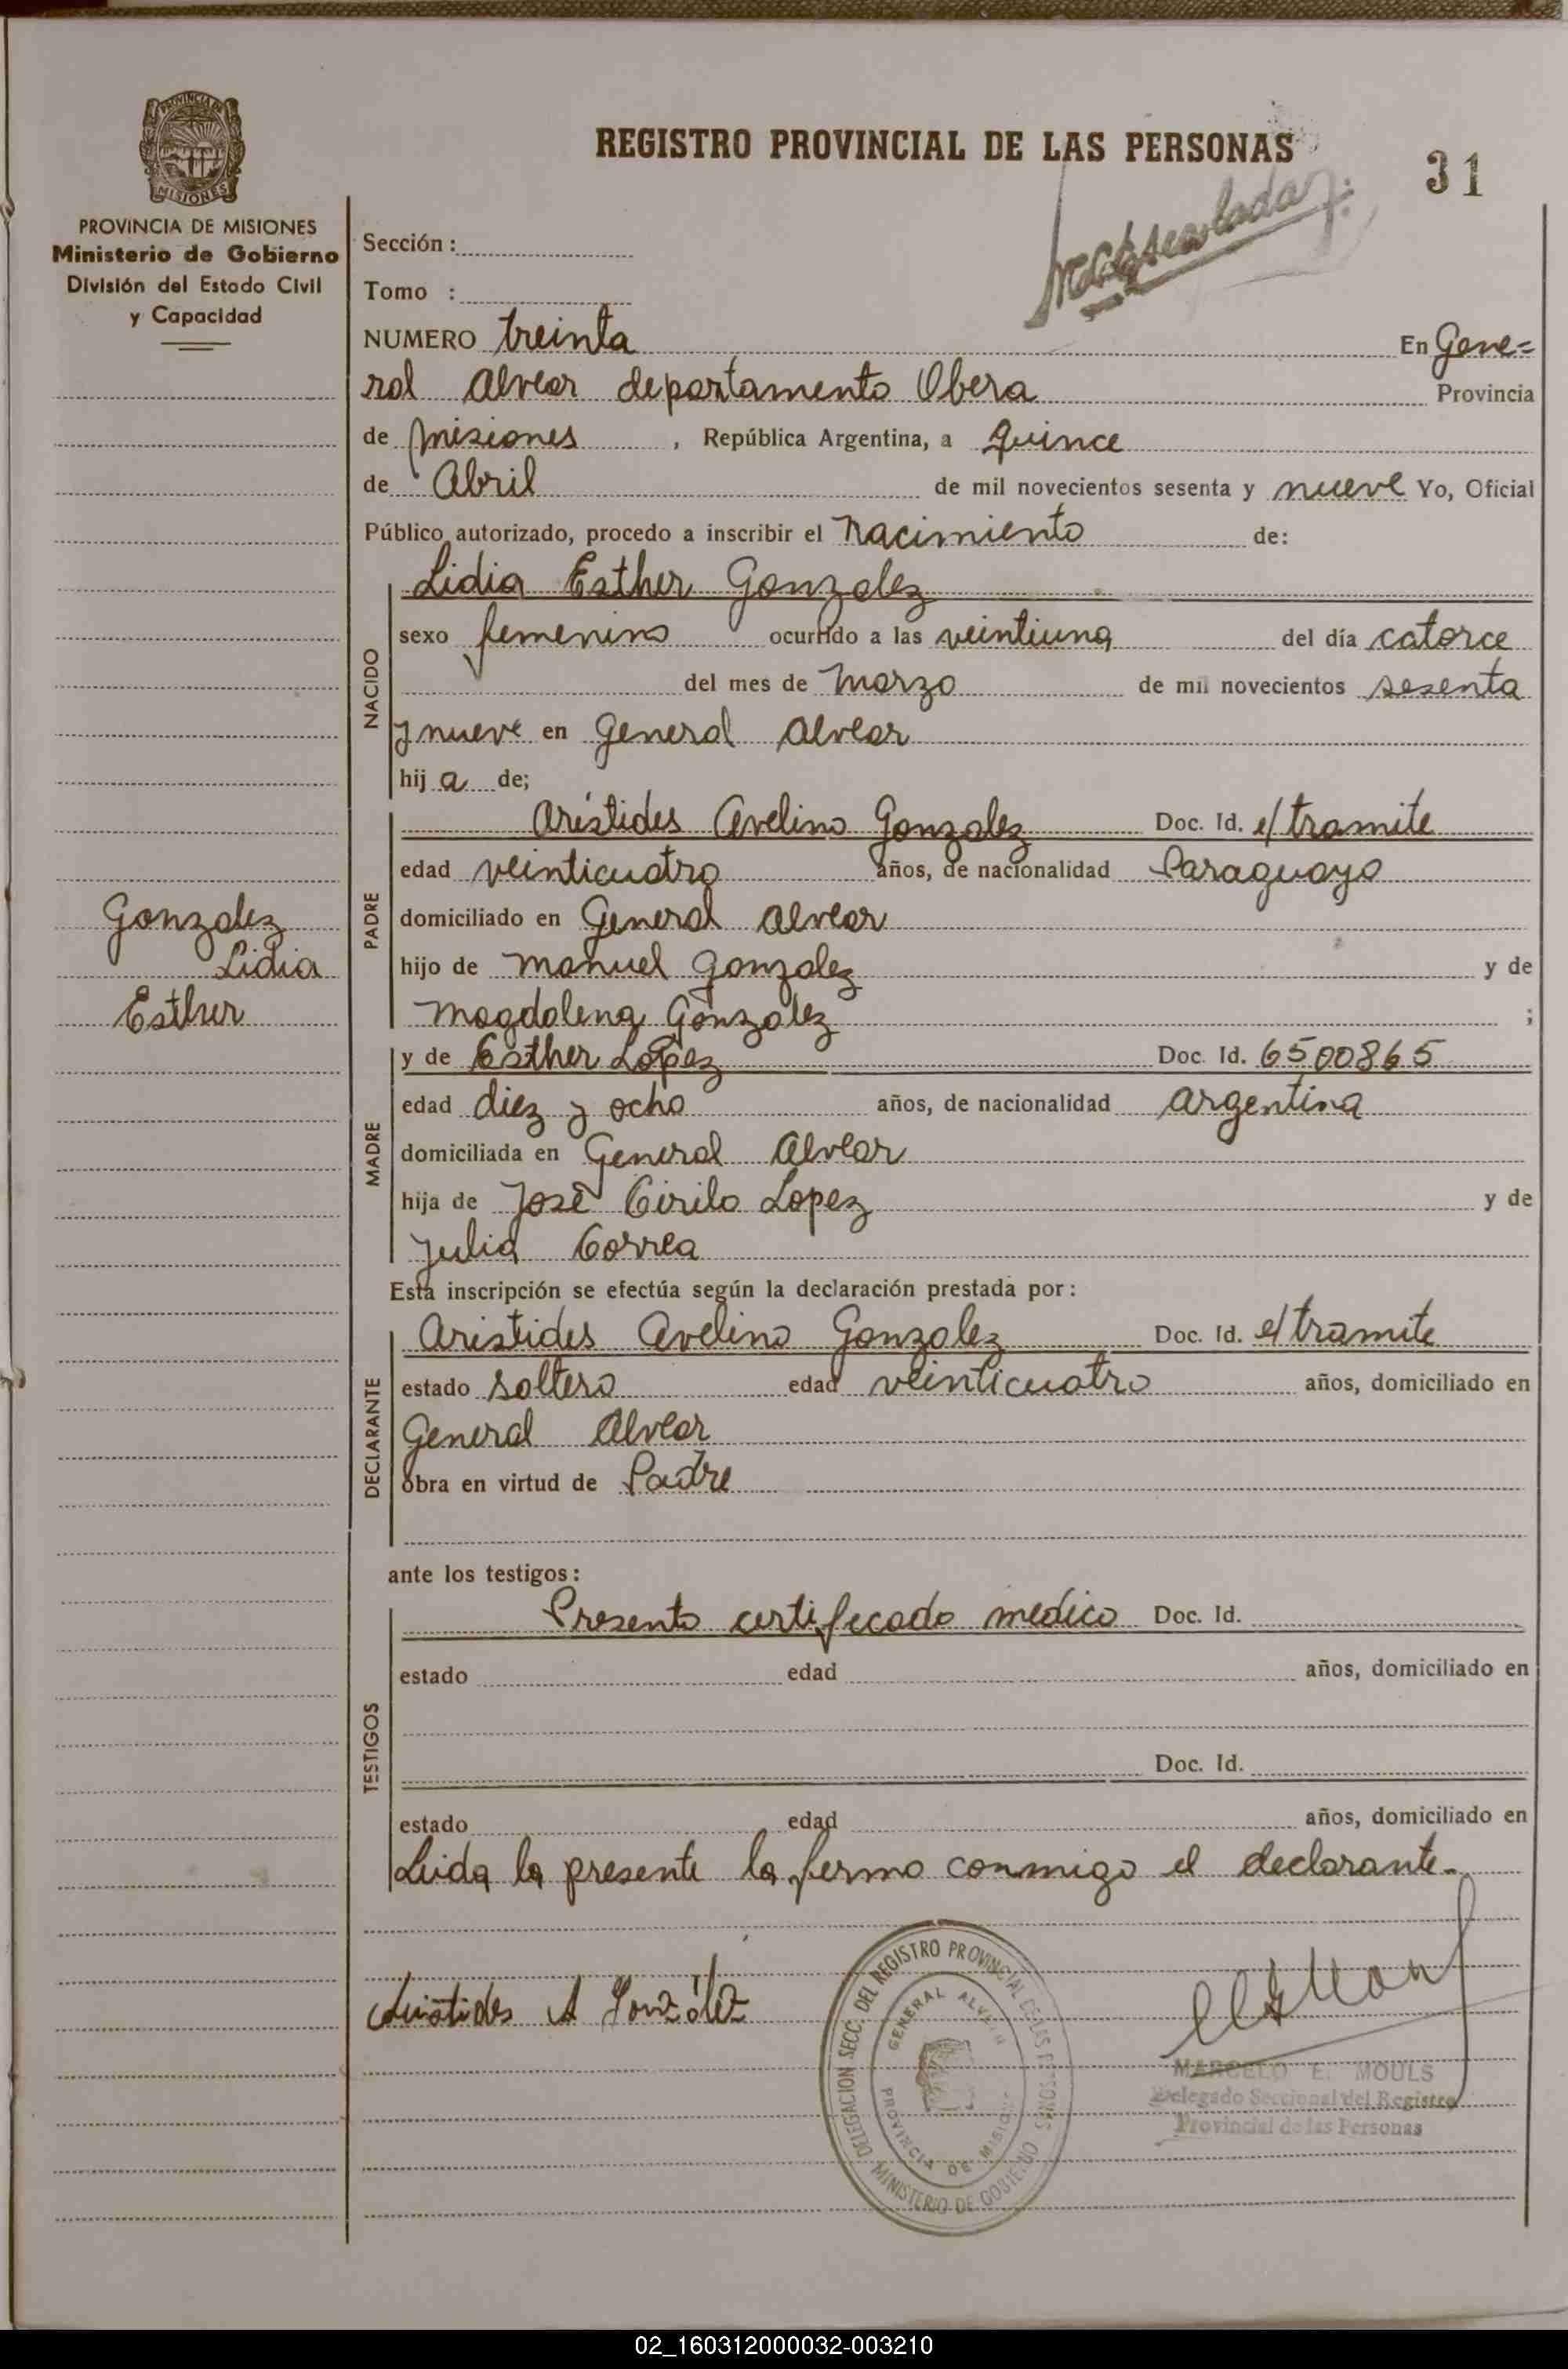 REGISTRO PROVINCIAL DE LAS PERSONAS
31
PROVINCIA DE MISIONES
PROVINCIA DE MISIONES
Ministerio de Gobierno
División del Estado Civil
y Capacidad
Sección :
Tomo :
NUMERO treinta En Gene=
ral Alvear departamento Obera Provincia
de Misiones , República Argentina, a quince
de Abril de mil novecientos sesenta y nueve Yo, Oficial
Público autorizado, procedo a inscribir el Nacimiento de:
NACIDO
Lidia Esther Gonzalez
sexo femenino ocurrido a las veintiuna del día catorce
del mes de Marzo de mil novecientos sesenta
y nueve en General Alvear
hij a de;
PADRE
Aristides Avelino Gonzalez Doc. Id. e/tramite
edad veinticuatro años, de nacionalidad Paraguayo
domiciliado en General Alvear
hijo de Manuel Gonzalez y de
Magdalena Gonzalez ;
Gonzalez
Lidia
Esther
MADRE
y de Esther Lopez Doc. Id. 6500865
edad diez y ocho años, de nacionalidad argentina
domiciliada en General Alvear
hija de José Cirilo Lopez y de
Julia Correa
Esta inscripción se efectúa según la declaración prestada por :
DECLARANTE
Aristides Avelino Gonzalez Doc. Id. e/tramite
estado soltero edad veinticuatro años, domiciliado en
General Alvear
obra en virtud de Padre
ante los testigos :
TESTIGOS
Presento certificado medico Doc. Id.
estado edad años, domiciliado en
Doc. Id.
estado edad años, domiciliado en
Leida la presente la firma conmigo el declarante.
Aristides A González
DELEGACION SECC. DEL REGISTRO PROVINCIAL DE LAS PERSONAS
MINISTERIO DE GOBIERNO
GENERAL ALVEAR
PROVINCIA DE MISIONES
MARCELO E. MOULS
Delegado Seccional del Registro
Provincial de las Personas
02_160312000032-003210